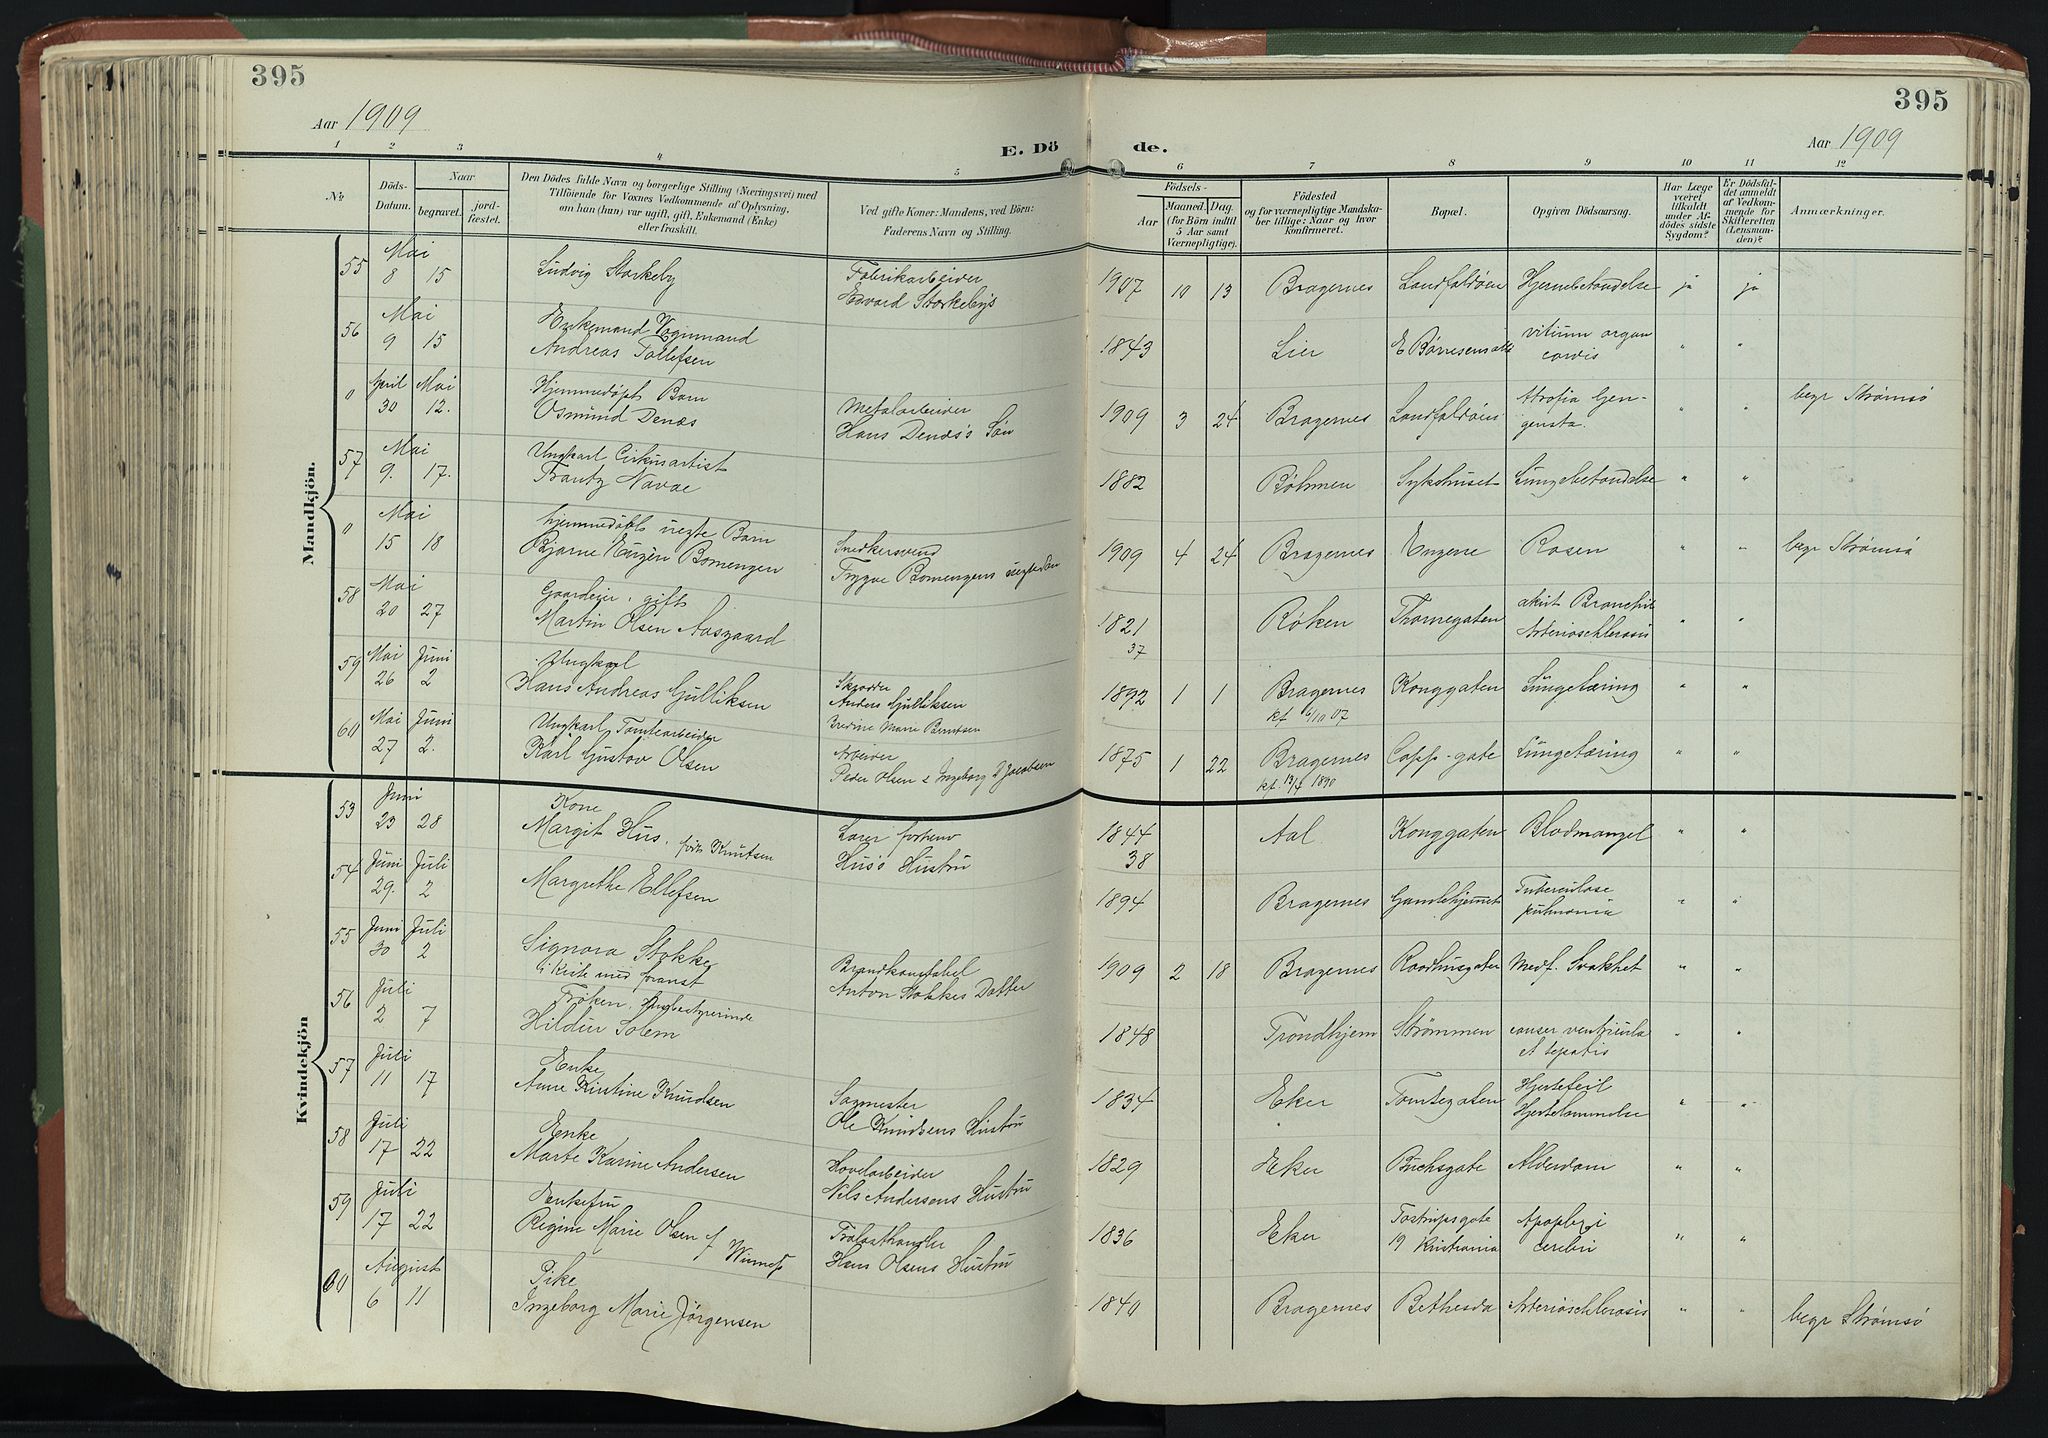 395
395
Aar 1909
Aar 1909
E. Dö
de.
1 2 3 4 5 6 7 8 9 10 11 12
№
Döds-
Datum.
Naar
begravet.
jord-
fæstet.
Den Dödes fulde Navn og borgerlige Stilling (Næringsvei) med
Tilföiende for Voxnes Vedkommende af Oplysning,
om han (hun) var ugift, gift, Enkemand (Enke)
eller fraskilt.
Ved gifte Koner: Mandens, ved Börn:
Faderens Navn og Stilling.
Födsels-
Aar
Maaned. Dag.
(for Börn indtil
5 Aar samt
Værnepligtige).
Födested
og for værnepligtige Mandska-
ber tillige: Naar og hvor
konfirmeret.
Bopæl.
Opgiven Dödsaarsag.
Har Læge
været
tilkaldt
under Af-
dödes sidste
Sygdom?
Er Dödsfal-
det anmeldt
af Vedkom-
mende for
Skifteretten
(Lensman-
den)?
Anmærkninger.
Mandkjön.
55 Mai
8 15 Ludvig Storkeby
Fabrikarbeider
Edvard Storkebys
1907 10 13 Bragernes Landfaldøen Hjernebetændelse ja ja
56 Mai
9 15 Enkemand Vognmand
Andreas Tollefsen
1843 Lier E Børresens vitium organ
cordis " "
0 April Mai
30 12. Hjemmedøpt Barn
Osmund Denæs
Metalarbeider
Hans Denæs's Søn
1909 3 24 Bragernes Landfaldøen Atrofia Gen-
gensta. " " begr Strømsø
57 Mai
9. 17. Ungkarl Cirkusartist
Frantz Navae
1882 Bøhmen Sykehuset Lungebetændelse " "
0 Mai
15 18 hjemmedøbt uegte Barn
Bjarne Eugèn Bomengen
Snedkersvend
Trygve Bomengens uegte Søn
1909 4 24 Bragernes Engene Rosen " " begr Strømsø
58 Mai
20 27 Gaardeier, gift
Martin Olsen Aasgaard
1821
37 Røken Thornegaten akut Bronchit
Arterioschlerosis " "
59 Mai Juni
26 2 Ungkarl
Hans Andreas Gulliksen
Skrædder
Anders Gulliksen
Bredine Marie Berntsen
1892 1 1 Bragernes Konggaten Lungetæring " "
kf 6/10 07
60 Mai Juni
27 2. Ungkarl Tomtearbeider
Karl Gustav Olsen
Arbeider
Peder Olsen & Ingeborg D Jacobsen
1875 1 22 Bragernes Capp-gate Lungetæring " "
kf. 13/7 1890
Kvindekjön
53 Juni
23 28 Kone
Margit Hus, født Knutsen
Lærer forhenv
Hus's Hustru
1844
38 Aal Konggaten Blodmangel " "
54 Juni Juli
29. 2 Margrethe Ellefsen
1894 Bragernes Gamlehjemmet Tuberculose
pulmonia " "
55 Juni Juli
30 2 Signora Stokke
i Kiste med foranst
Brandkonstabel
Anton Stokkes Datter
1909 2 18 Bragernes Raadhusgaten Medf. Svakhet " "
56 Juli
2 7 Frøken,
Hildur Solem
1848 Trondhjem Strømmen cancer ventriculi
et hepatis " "
57 Juli
11 17 Enke
Anne Kirstine Knudsen
Sagmester
Ole Knudsens Hustru
1834 Eker Tomtegaten Hjertefeil
Hjertelammelse " "
58 Juli
17 22 Enke
Marte Karine Andersen
Høvelarbeider
Nels Andersens Hustru
1829 Eker Buchsgate Alderdom " "
59 Juli
17 22 Enkefru
Regine Marie Olsen f
Trælasthandler
Hans Olsens Hustru
1836 Eker Tostrupsgate
19 Kristiania Apoplexi
cerebri " "
60 August
6 11 Pike
Ingeborg Marie Jørgensen
1840 Bragernes Bethesda Arterioschlerosis " " begr Strømsø